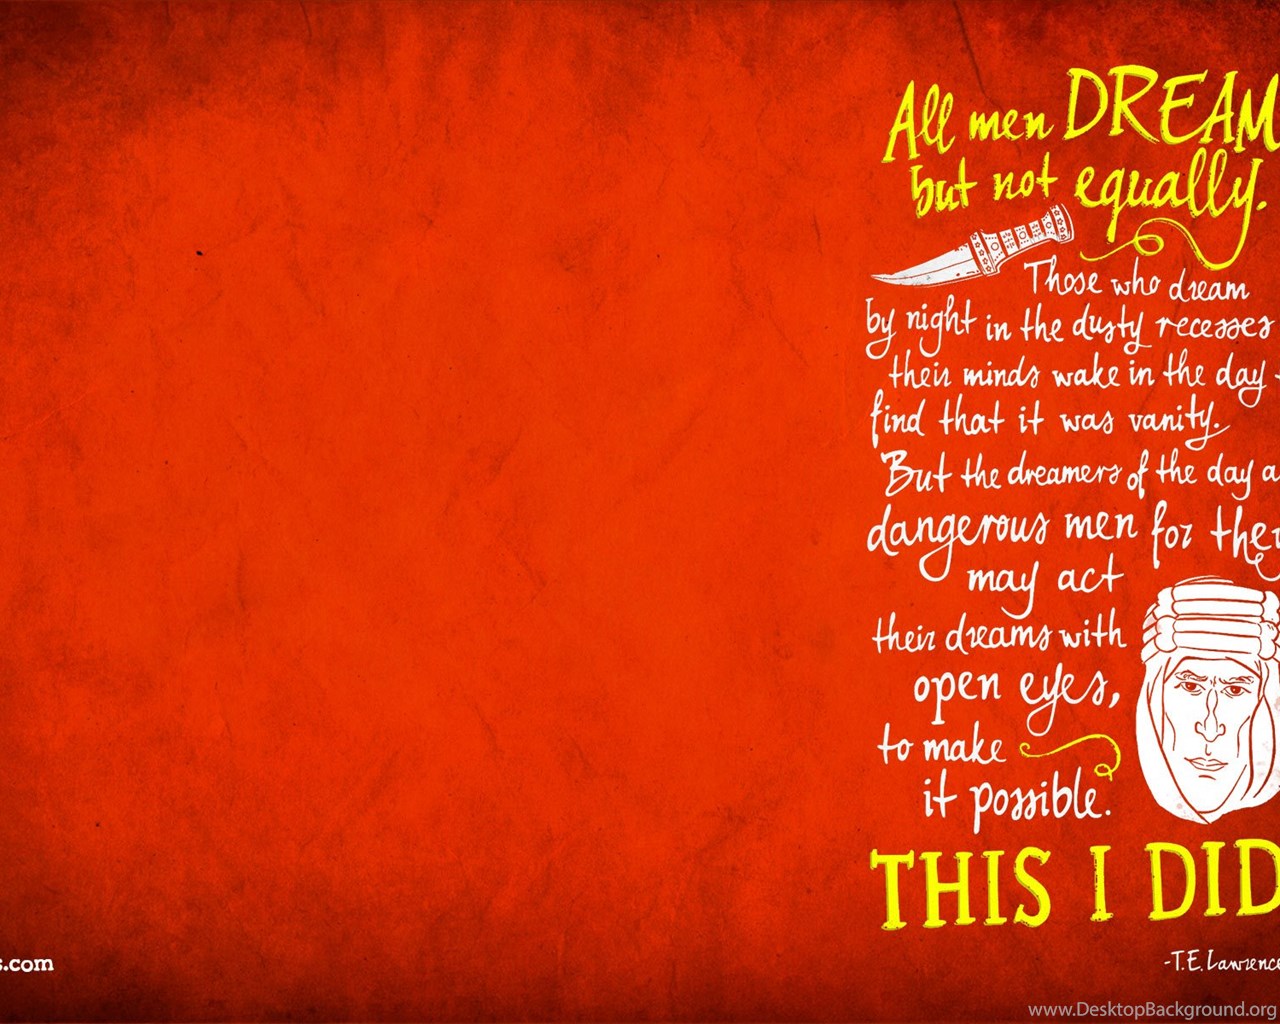 All men DREAM
but not equally.
Those who dream
by night in the dusty recesses
their minds wake in the day
find that it was vanity.
But the dreamers of the day a
dangerous men for they
may act
their dreams with
open eyes,
to make
it possible.
THIS I DID
-T.E. Lawrence
s.com
www.DesktopBackground.org